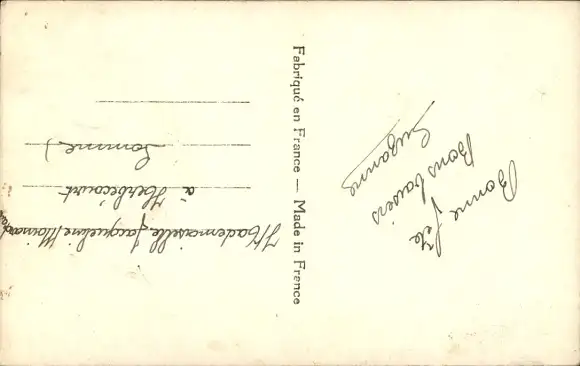 Bonne fête
Bons baisers
Suzanne
Fabriqué en France — Made in France
Mademoiselle Jacqueline
à Herbécourt
Somme)